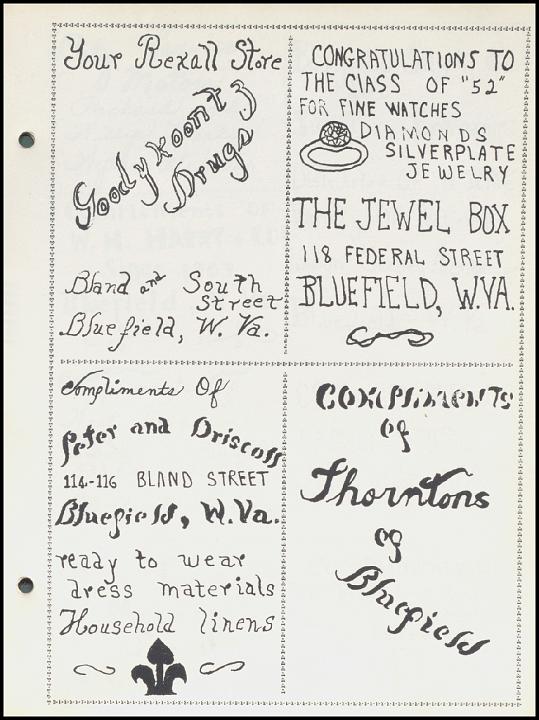 Your Rexall Store
Goodykoontz
Drugs
Bland and South
Street
Bluefield, W. Va.
CONGRATULATIONS TO
THE CLASS OF "52"
FOR FINE WATCHES
DIAMONDS
SILVERPLATE
JEWELRY
THE JEWEL BOX
118 FEDERAL STREET
BLUEFIELD, W.VA.
Compliments Of
Peter and Driscoll
114-116 BLAND STREET
Bluefield, W.Va.
ready to wear
dress materials
Household linens
COMPliMENTS
of
Thorntons
of
Bluefield